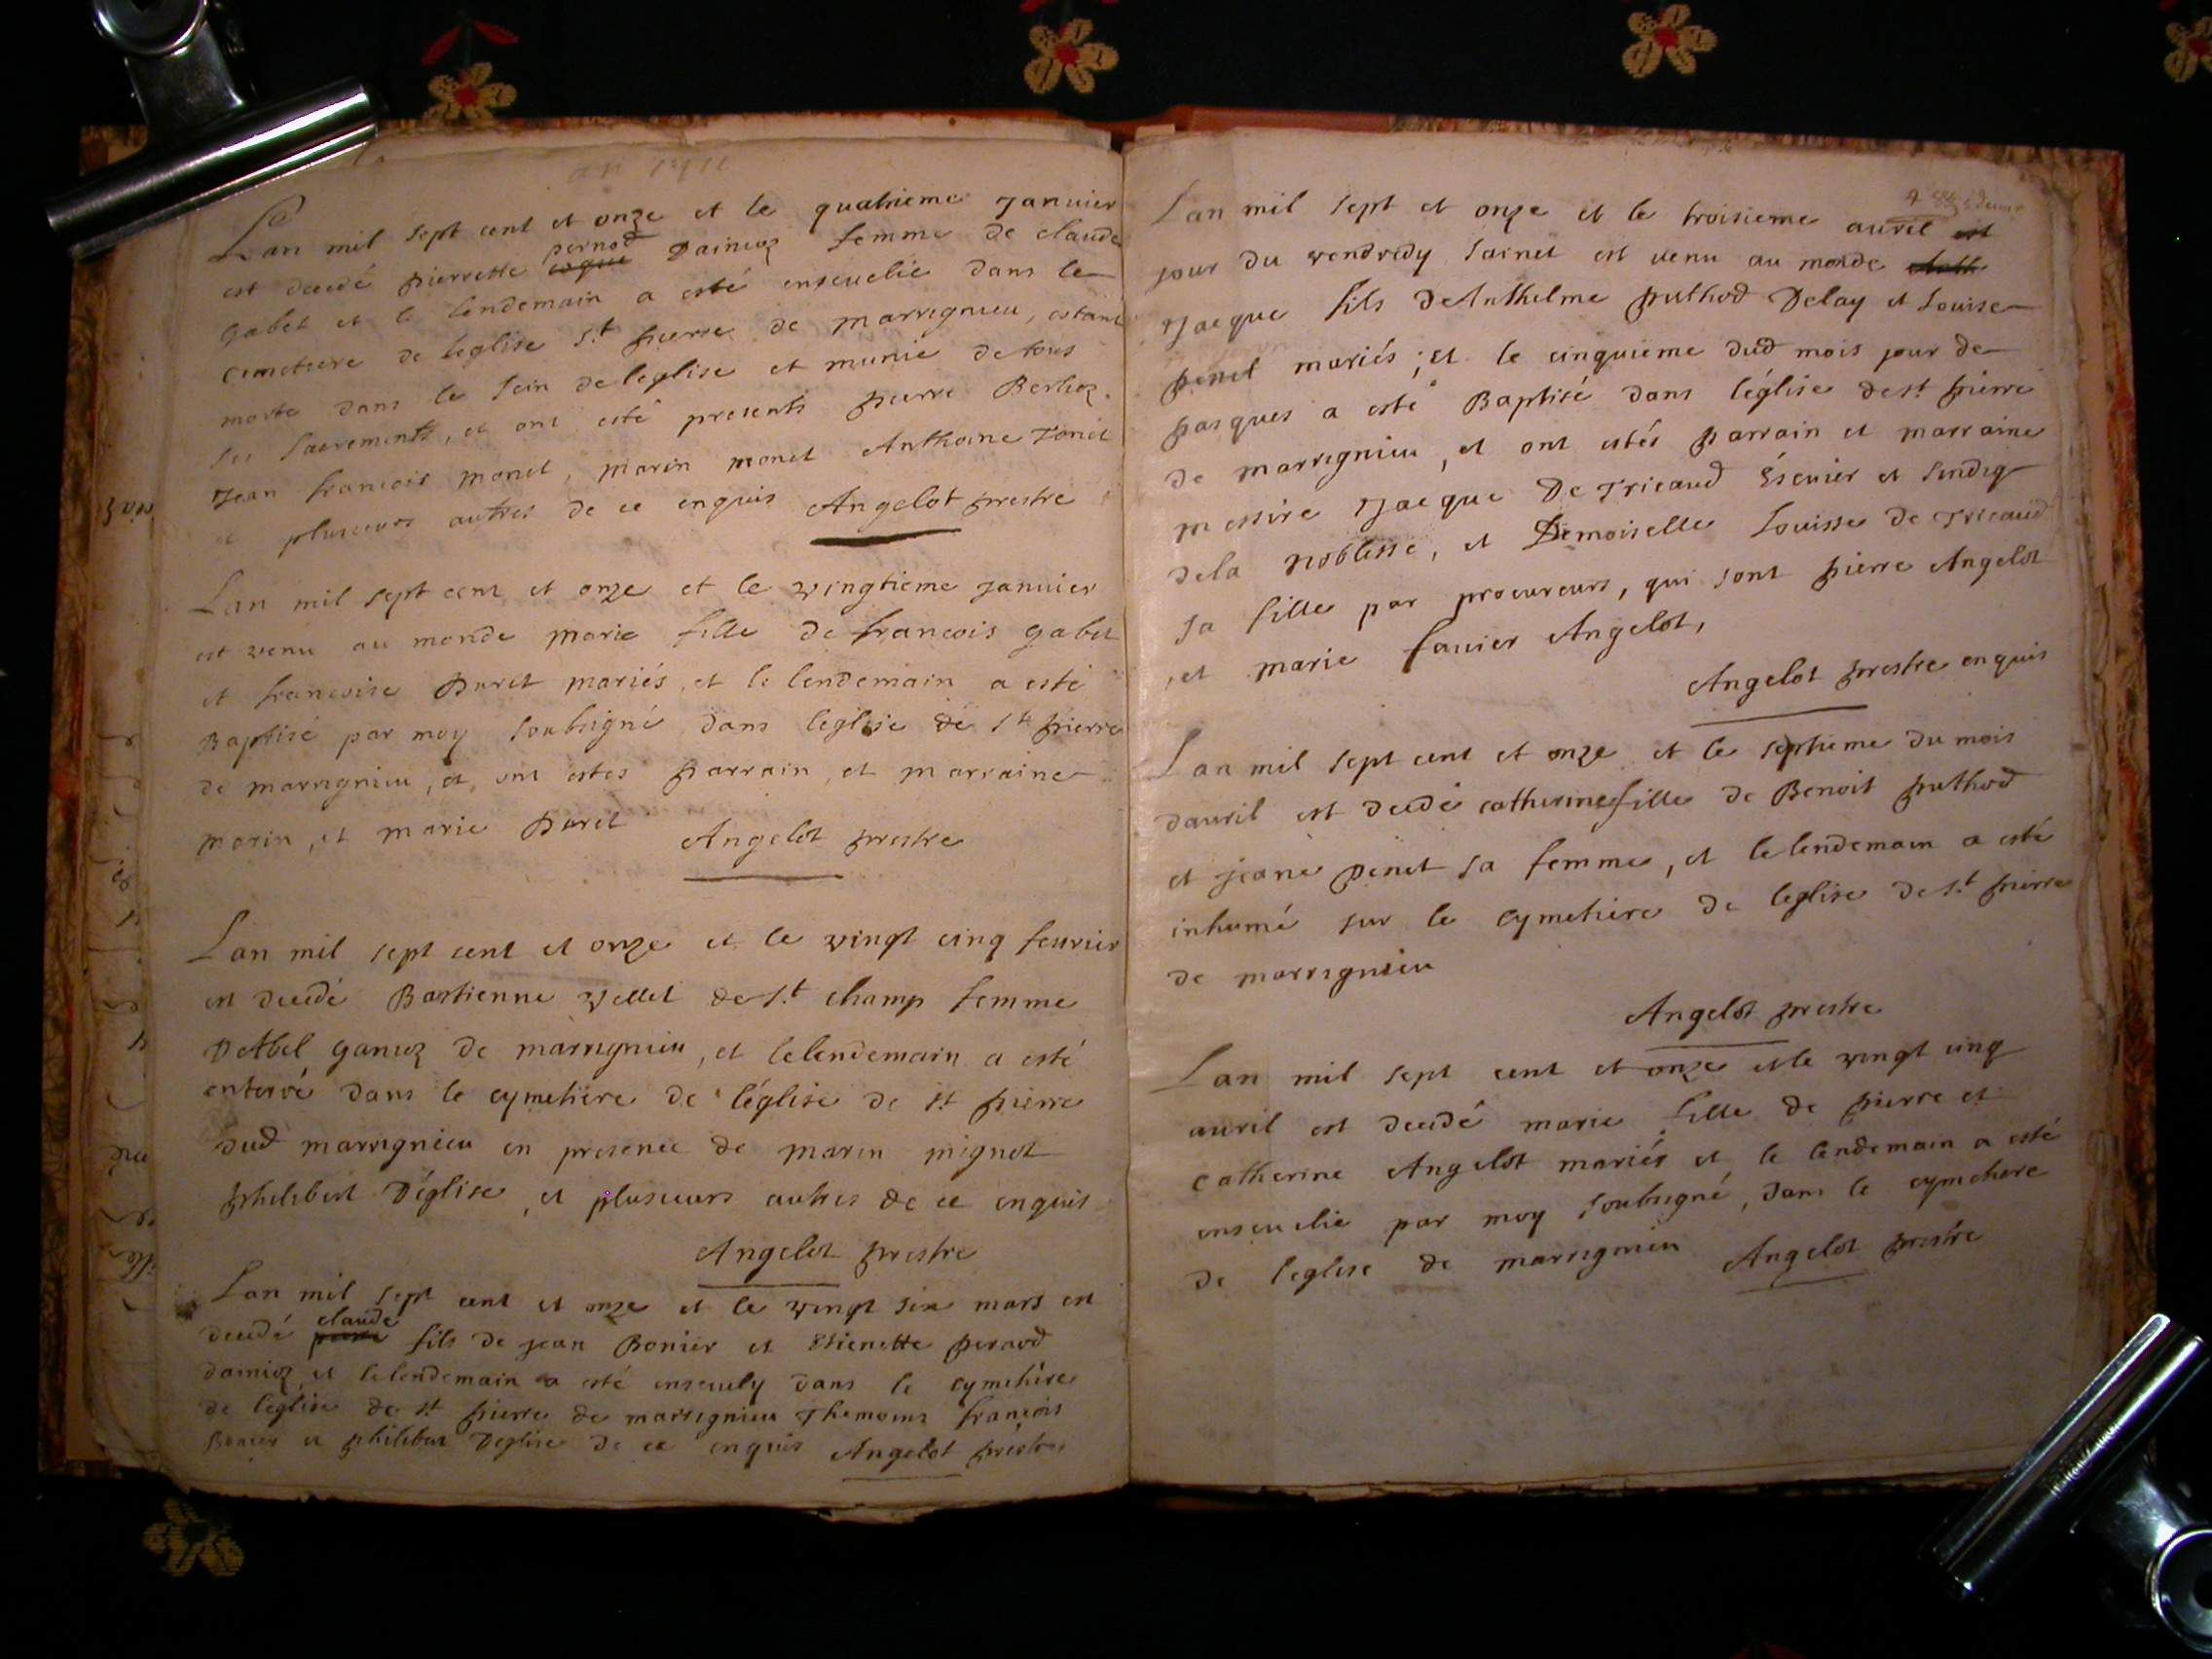 an 1711
Lan mil sept cent et onze et le quatrieme Januier
est decedé pierrette pernod Dainioz femme de claude
gabet et le lendemain a esté enseuelie dans le
cimetiere de leglise st pierre de marrignieu, estant
morte dans le sein de leglise et munie de tous
ses sacrements, et ont esté presents pierre Berlioz
Jean francois monet, marin monet Anthoine Tonet
et plusieurs autres de ce enquis Angelot prestre
Lan mil sept cent et onze et le vingtieme januier
est venu au monde marie fille de francois gabet
et francoise puret mariés, et le lendemain a esté
Baptisé par moy soubsigné dans leglise de st pierre
de marrignieu, et ont estes parrain, et marraine
marin, et marie puret Angelot prestre
Lan mil sept cent et onze et le vingt cinq feurier
est decedé Bastienne vellet de st champ femme
DeAbel ganioz de marrignieu, et lelendemain a esté
enterré dans le cymetiere de léglise de st pierre
dud marrignieu en presence de marin mignot
philibert Déglise, et plusieurs autres de ce enquis
Angelot prestre
Lan mil sept cent et onze et le vingt six mars est
decedé claude fils de jean Bonier et Etienette pernod
dainioz, et lelendemain a esté enseuely dans le cymetiere
de leglise de st pierre de marrignieu Themoins françois
Bonier et philibert Deglise de ce enquis Angelot prestre
Lan mil sept et onze et le troisieme auril est
jour du vendredy sainct est uenu au monde
Jacque fils deAnthelme puthod Delay et Louise
penet mariés; et le cinquieme dud mois jour de
pasques a esté Baptisé dans léglise de st pierre
de marrignieu, et ont estés parrain et marraine
messire Jacque De Tricaud Escuier et sindiq
dela noblesse, et Demoiselle Louisse de Tricaud
sa fille par procureurs, qui sont pierre Angelot
et marie fauier Angelot,
Angelot prestre enquis
Lan mil sept cent et onze et le septieme du mois
dauril est decedé catherine fille de Benoit puthod
et jeane penet sa femme, et lelendemain a esté
inhumé sur le cymetiere de leglise de st pierre
de marrignieu
Angelot prestre
Lan mil sept cent et onze et le vingt cinq
auril est decedé marie fille de pierre et
catherine Angelot mariés et le lendemain a esté
enseuelie par moy soubsigné, dans le cymetiere
de leglise de marrignieu Angelot prestre